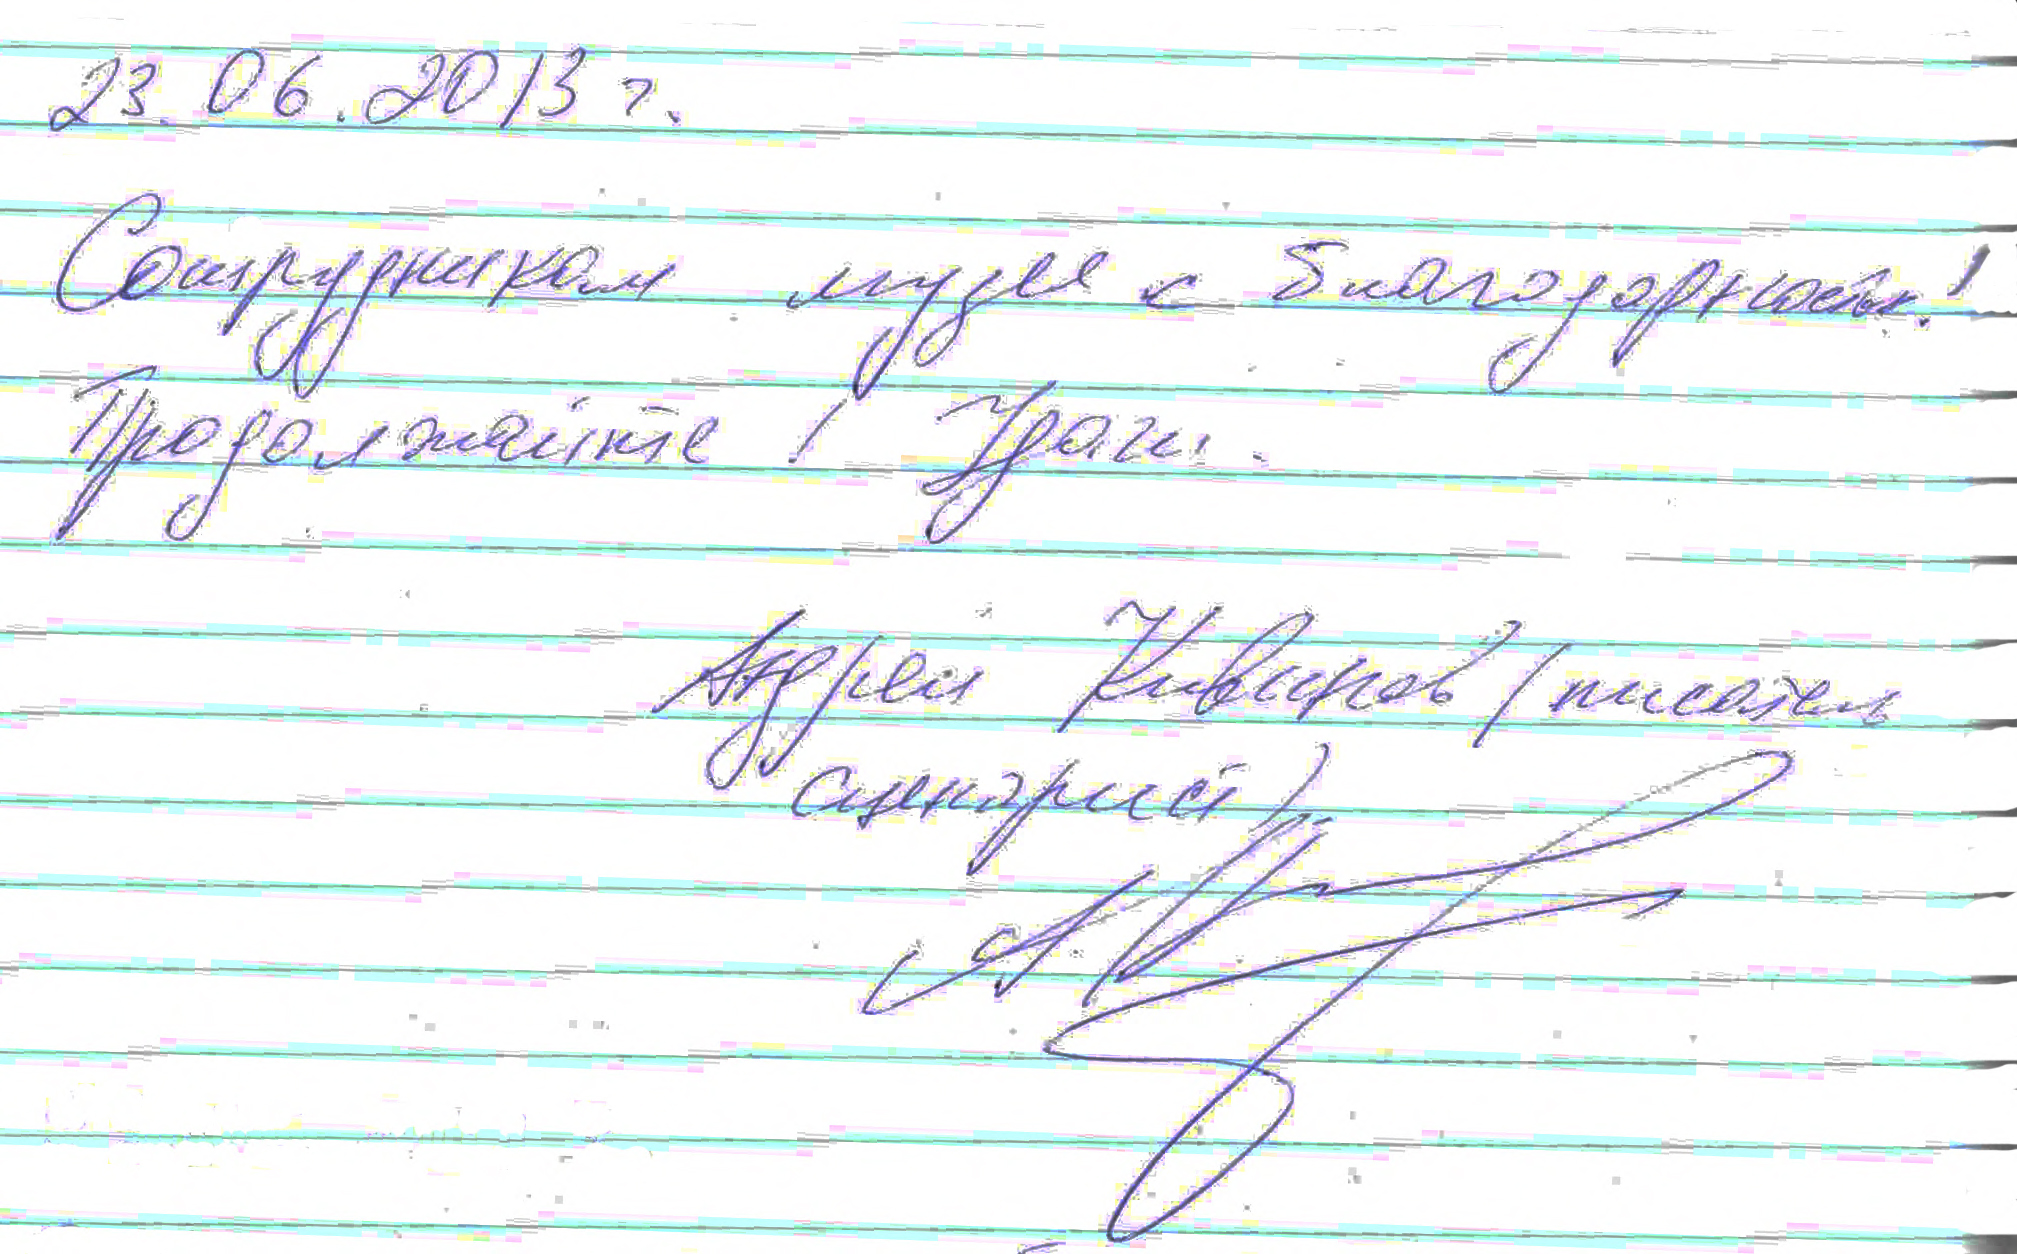 23.06.2013 г.
Сотрудникам музея с благодарностью!
Продолжайте! Удачи.
Андрей Кивинов (писатель
сценарист)